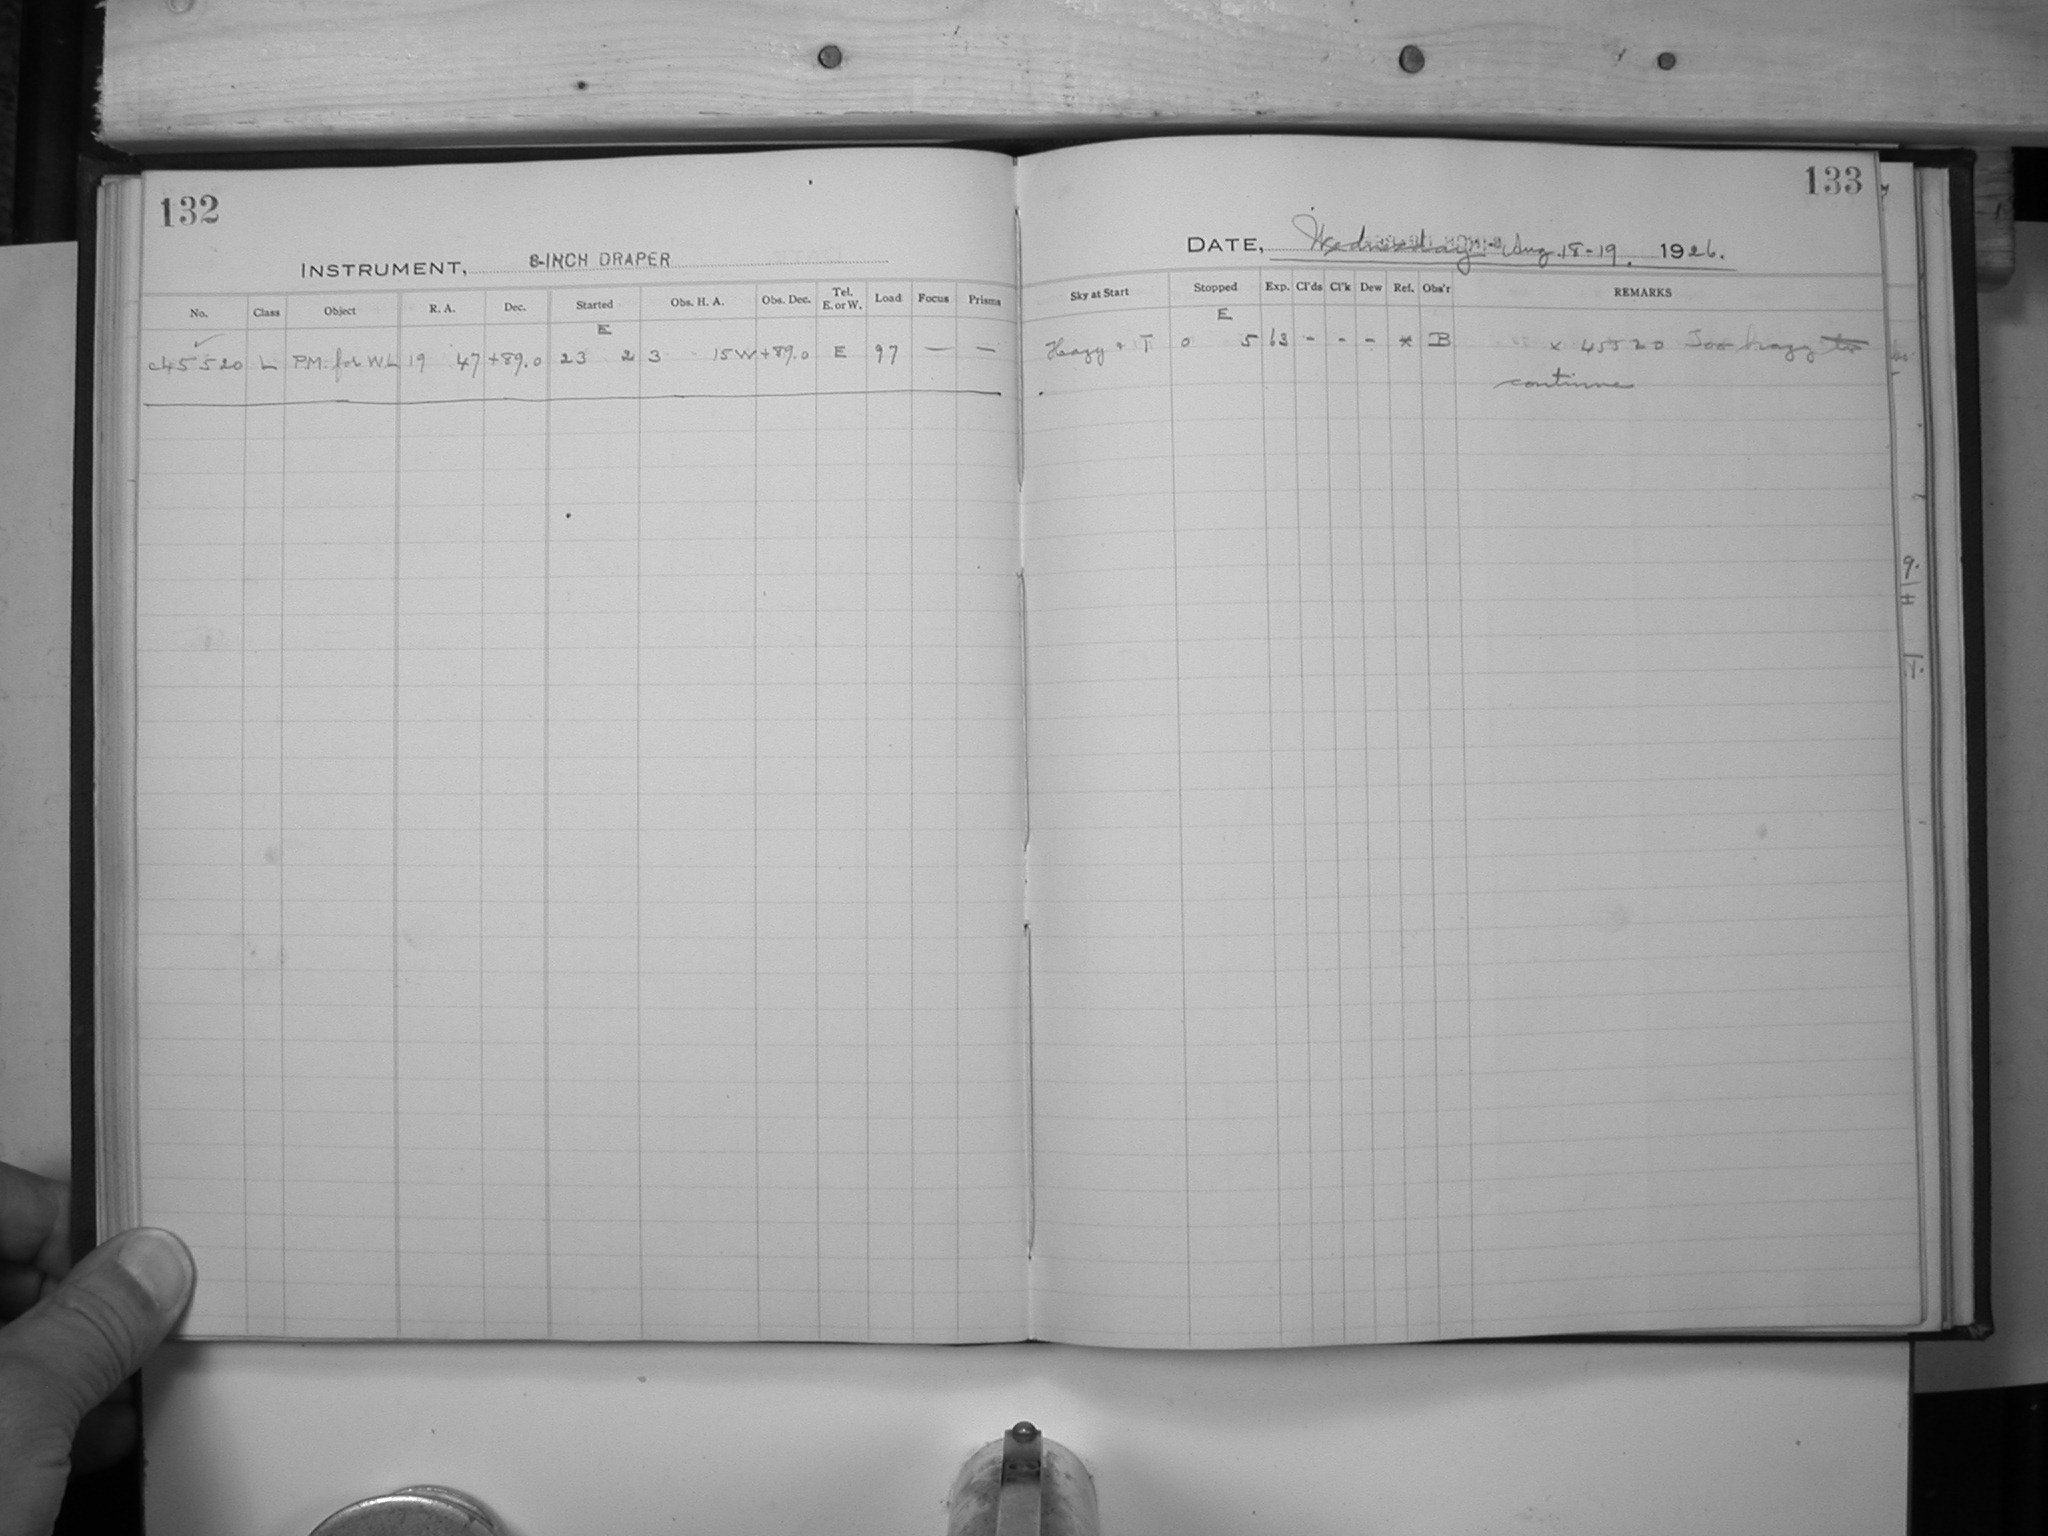 132
INSTRUMENT, 8-INCH DRAPER
No. Class Object R. A. Dec. Started Obs. H. A. Obs. Dec. Tel. E. or W. Load Focus Prisms
E
c45520 L P.M. for WL 19 47 +89.0 23 2 3 15W +89.0 E 97 — —
133
DATE, Wednesday - Aug. 18-19. 1926.
Sky at Start Stopped Exp. Cl'ds Cl'k Dew Ref. Obs'r REMARKS
E
Hazy & T 0 5 63 - - - * B × 45520 Too hazy to
continue
9.